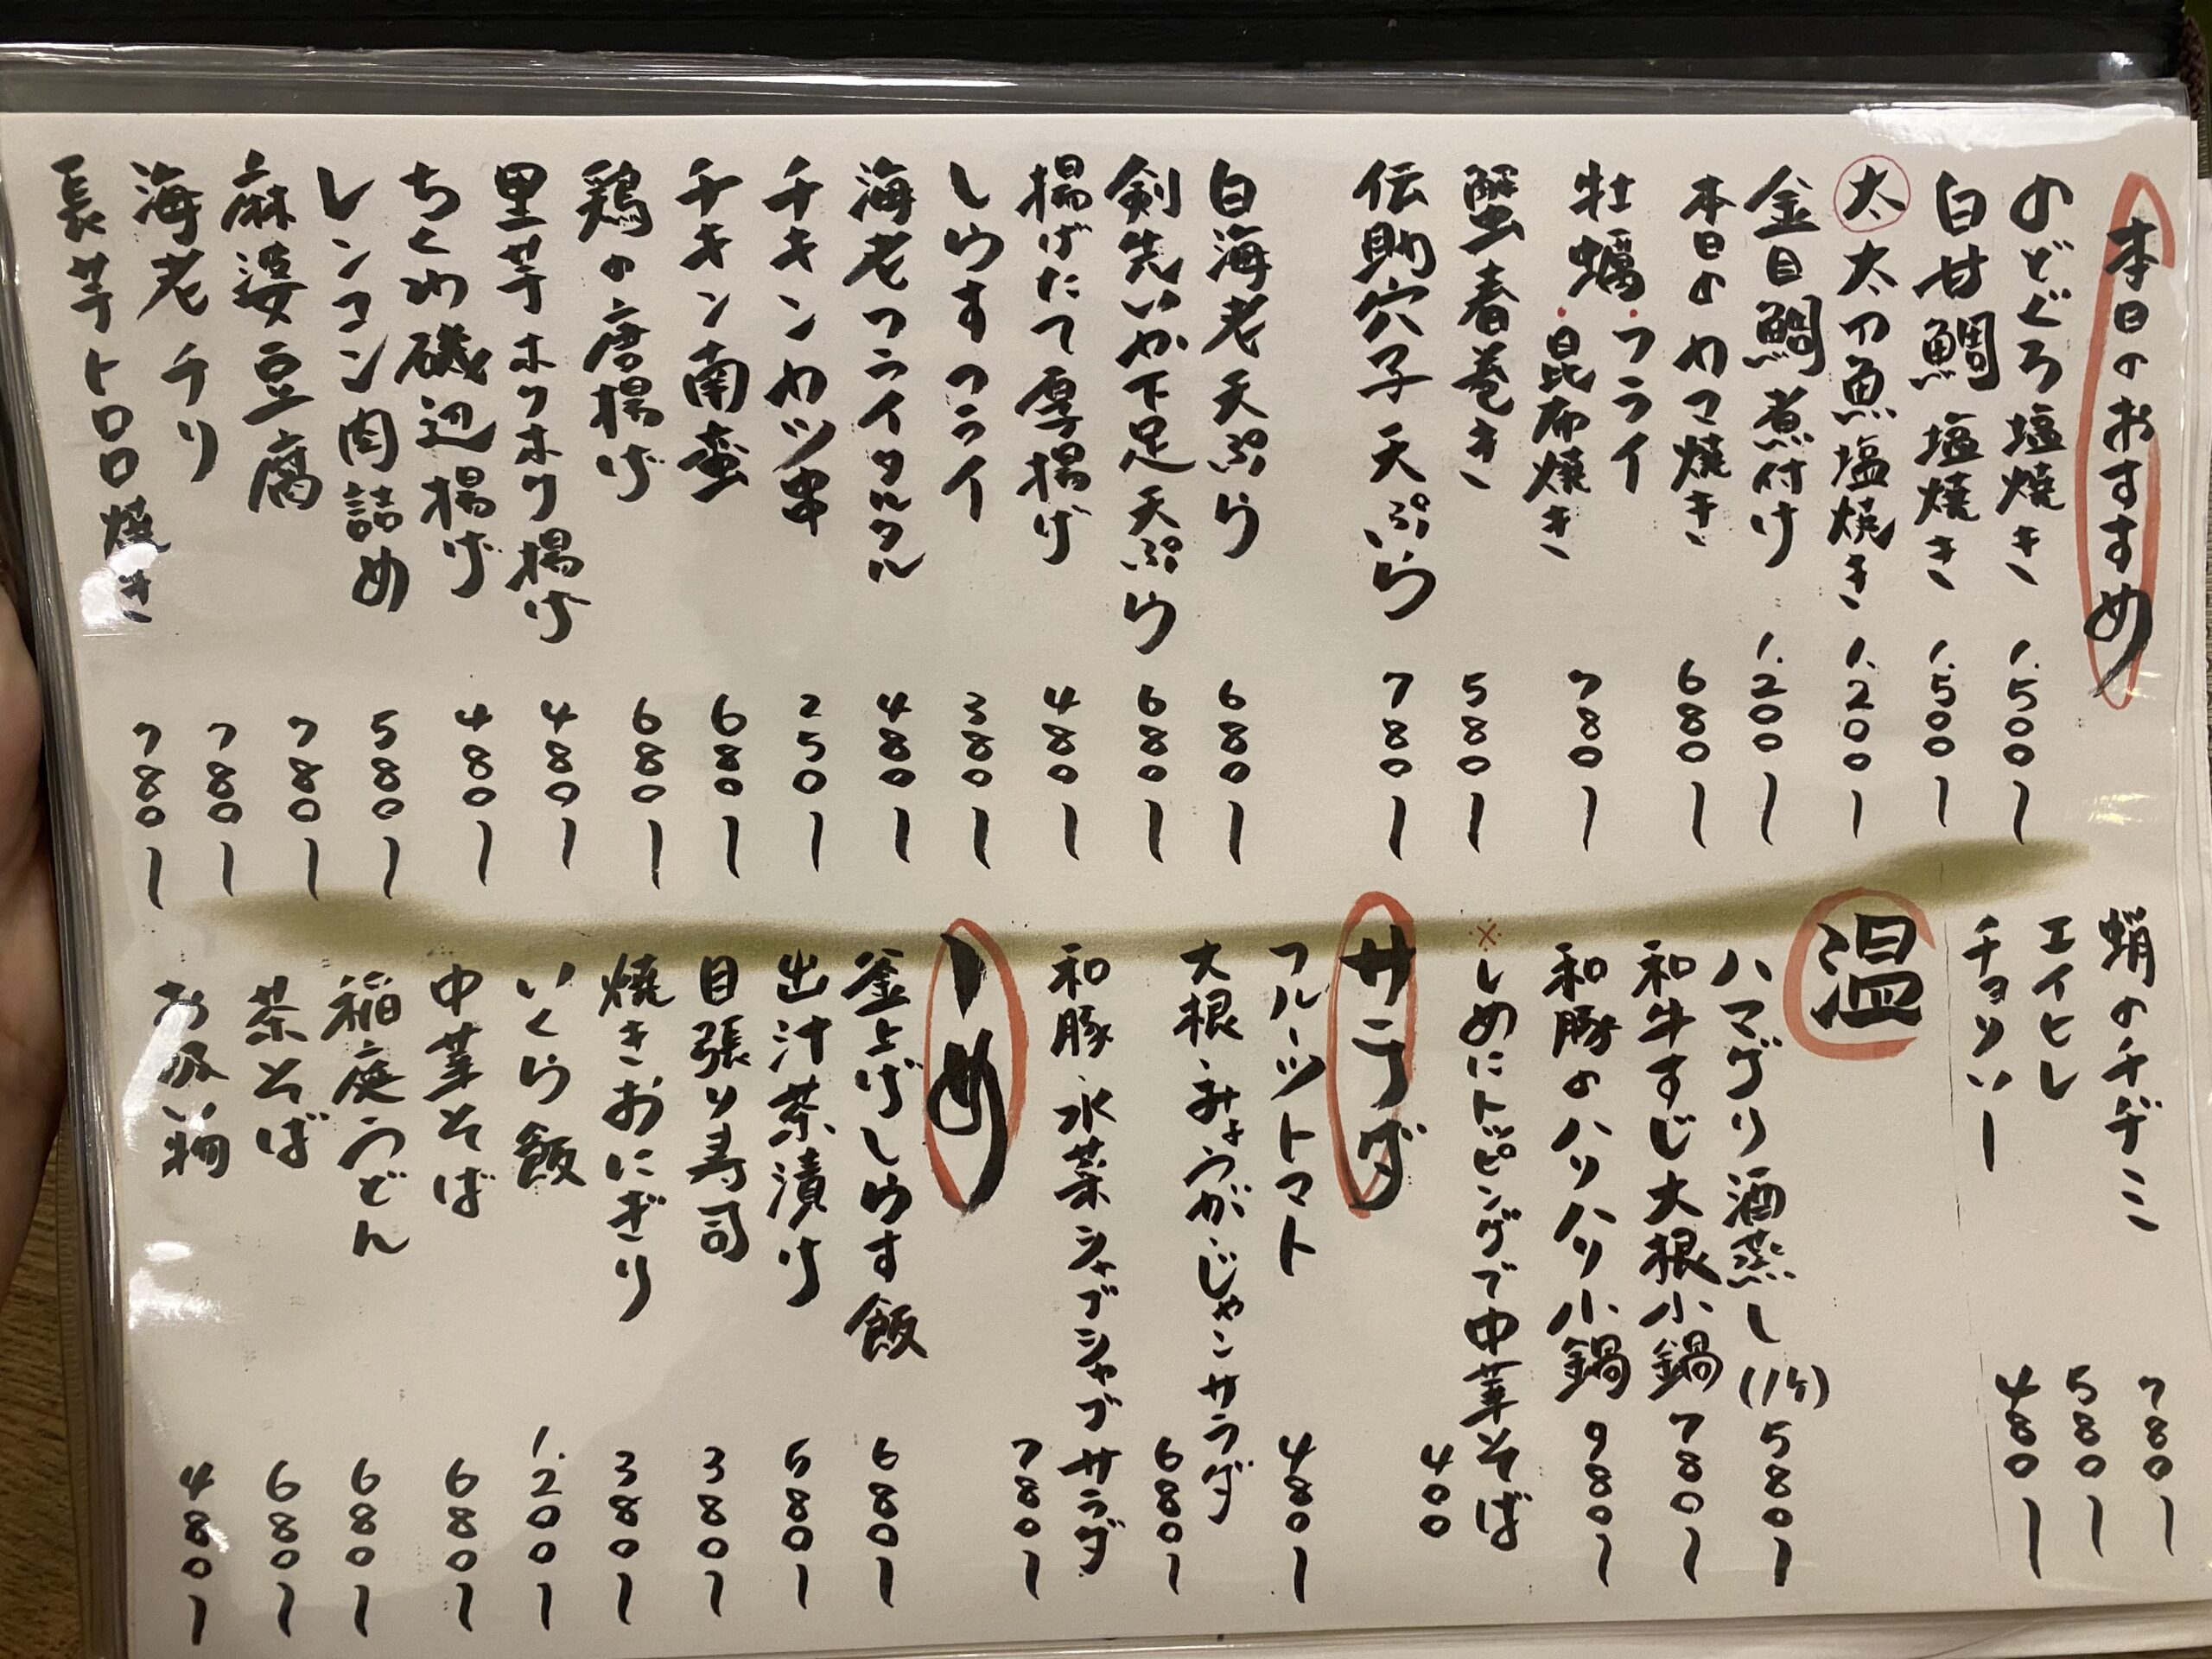 本日のおすすめ
のどぐろ塩焼き 1.500ー
白甘鯛塩焼き 1.500ー
太 太刀魚塩焼き 1.200ー
金目鯛煮付け 1.200ー
本日のカマ焼き 680ー
牡蠣・フライ
・昆布焼き 780ー
蟹春巻き 580ー
伝助穴子天ぷら 780ー
白海老天ぷら 680ー
剣先いか下足天ぷら 680ー
揚げたて厚揚げ 480ー
しらすフライ 380ー
海老フライタルタル 480ー
チキンカツ串 250ー
チキン南蛮 680ー
鶏の唐揚げ 680ー
里芋ホクホク揚げ 480ー
ちくわ磯辺揚げ 480ー
レンコン肉詰め 580ー
麻婆豆腐 780ー
海老チリ 780ー
長芋トロロ焼き 780ー
蛸のチヂミ 780ー
エイヒレ 580ー
チョリソー 480ー
温
ハマグリ酒蒸し(1ヶ) 580ー
和牛すじ大根小鍋 780ー
和豚のハリハリ小鍋 980ー
※しめにトッピングで中華そば 400
サラダ
フルーツトマト 480ー
大根・みょうが・じゃこサラダ 680ー
和豚・水菜シャブシャブサラダ 780ー
〆
釜上げしらす飯 680ー
出汁茶漬け 580ー
目張り寿司 380ー
焼きおにぎり 380ー
いくら飯 1.200ー
中華そば 680ー
稲庭うどん 680ー
茶そば 680ー
お吸い物 480ー